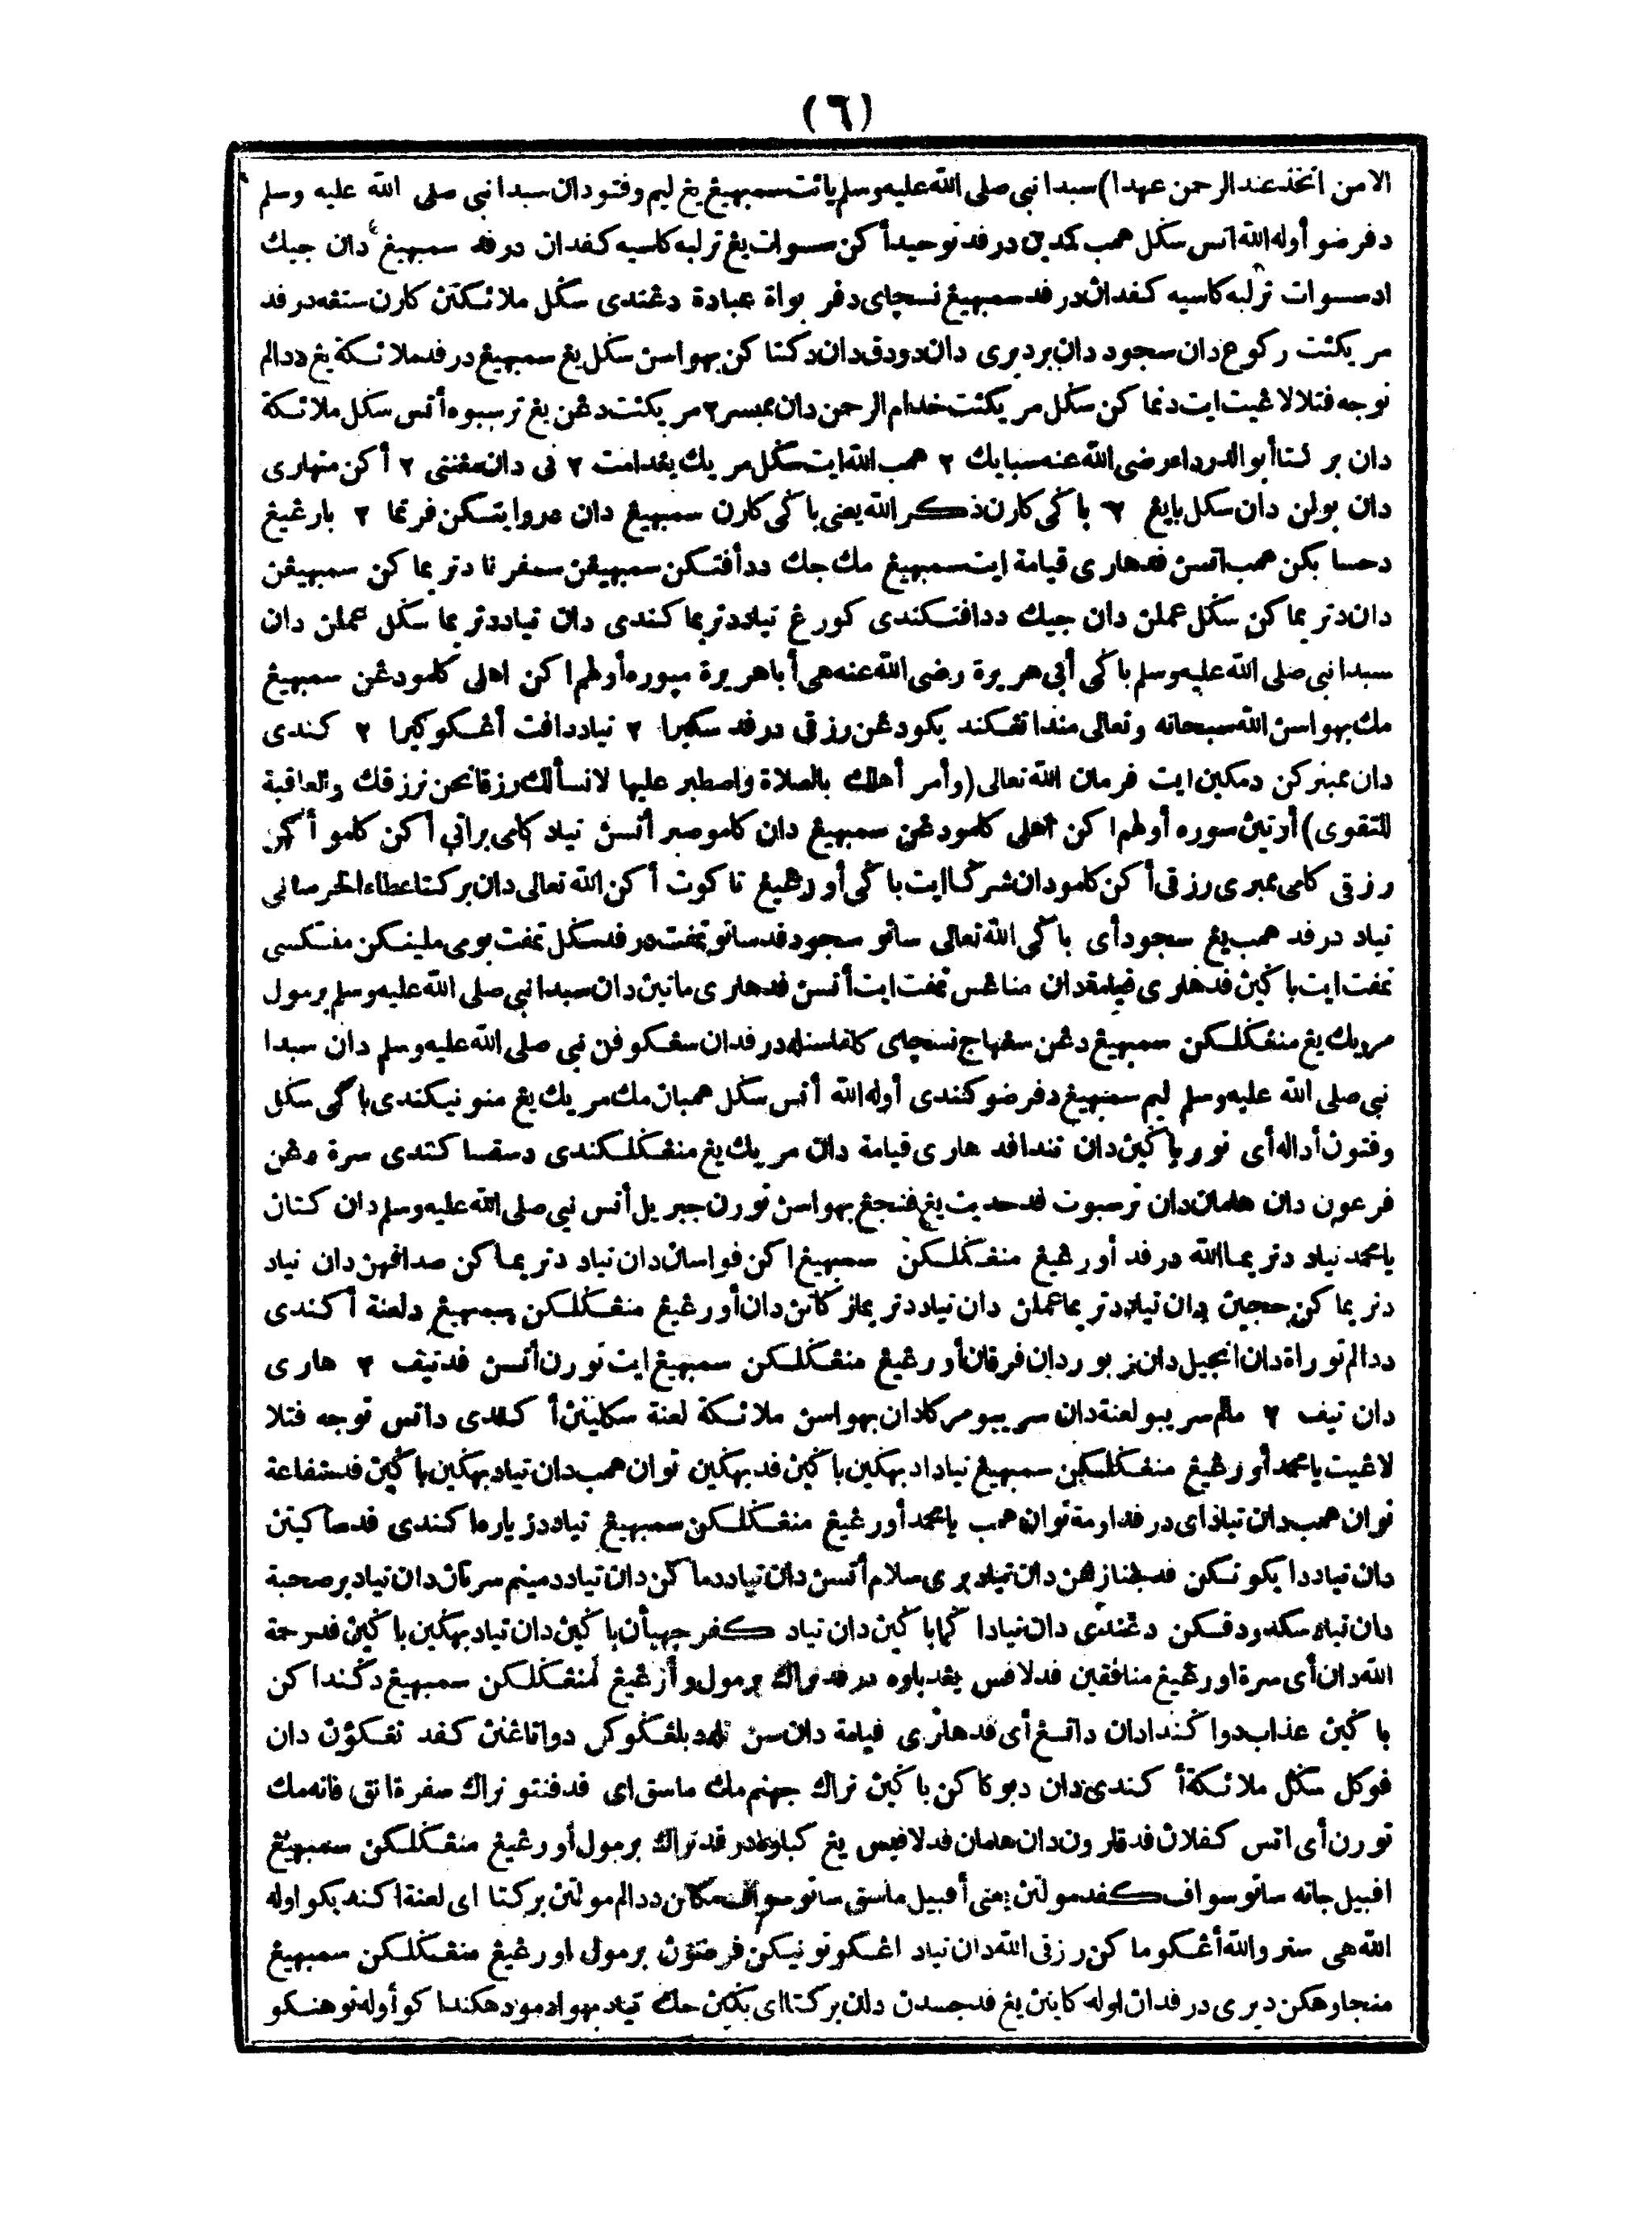 (٦)
الا من اتخذ عند الرحمن عهدا) سبدا نبي صلى الله عليه وسلم يائت سمبهيڠ يڠ ليم وقتو دان سبدا نبي صلى الله عليه وسلم
دفرضو أوله الله اتس سكل همب كمدين در فد توحيد أكن سسوات يڠ ترلبه كاسيه كفدان در فد سمبهيڠ دان جيك
اد سسوات ترلبه كاسيه كفدان در فد سمبهيڠ نسچاي دفر بواة عبادة دڠندى سكل ملائكتن كارن ستڠه در فد
مريكئت ركوع دان سجود دان برديرى دان دودق دان دكتاكن بهواسن سكل يڠ سمبهيڠ در فد ملائكة يڠ ددالم
توجه فتلا لاڠيت ايت دنماكن سكل مريكئت خدام الرحمن دان ممبسر٢ مريكئت دڠن يڠ ترسبوه أتس سكل ملائكة
دان بر كتا أبو الدرداء رضى الله عنه سبايك ٢ همب الله ايت سكل مريك يڠ دامت ٢ ي دان مڠنتي ٢ أكن متهارى
دان بولن دان سكل بايڠ ٢ باكي كارن ذكر الله يعنى باكي كارن سمبهيڠ دان دروايتكن فرتما ٢ بارڠيڠ
دحسابكن همب اتسن فد هارى قيامة ايت سمبهيڠ مك جك ددأفتكن سمبهيڠن سمفرنا دتريماكن سمبهيڠن
دان دتريماكن سكل عملن دان جيك ددافتكندى كورڠ تياد دتريما كندى دان تياد دتريما سكل عملن دان
سبدا نبي صلى الله عليه وسلم باكي أبي هريرة رضى الله عنه هي أبا هريرة سوره أولهم اكن اهلي كامو دڠن سمبهيڠ
مك بهواسن الله سبحانه وتعالى منداتڠكند يكو دڠن رزقي در فد سكيرا ٢ تياد دافت أڠكو كيرا ٢ كندى
دان ممبنركن دمكين ايت فرمان الله تعالى (وأمر أهلك بالصلاة واصطبر عليها لا نسألك رزقا نحن نرزقك والعاقبة
للتقوى) أرتين سوره أولهم اكن اهلي كامو دڠن سمبهيڠ دان كامو صبر أتسن تياد كامي براني أكن كامو أكن
رزقي كامي ممبرى رزقي أكن كامو دان شركا ايت باكي أورڠيڠ تاكوت أكن الله تعالى دان بركتا عطاء الخرساني
تياد در فد همب يڠ سجود أي باكي الله تعالى ساتو سجود فد ساتو تمفت در فد سكل تمفت بومي ملينكن مڠكسي
تمفت ايت باكين فد هارى قيامة دان مناڠس تمفت ايت أتسن فد هارى ماتين دان سبدا نبي صلى الله عليه وسلم برمول
مريك يڠ منڠكلكن سمبهيڠ دڠن سڠهاج نسچاي كلفاسنله در فدان سڠكوڤن نبي صلى الله عليه وسلم دان سبدا
نبي صلى الله عليه وسلم ليم سمبهيڠ دفرضوكندى أوله الله أتس سكل همبان مك مريك يڠ منونيكندى باكي سكل
وقتون أداله أي نور باكين دان تندا فد هارى قيامة دان مريك يڠ منڠكلكندى دسقساكندى سرة دڠن
فرعون دان هامان دان ترسبوت فد حديث يڠ فنجڠ بهواسن تورن جبريل أتس نبي صلى الله عليه وسلم دان كتان
يا محمد تياد دتريما الله در فد أورڠيڠ منڠكلكن سمبهيڠ اكن فواسان دان تياد دتريماكن صدافهن دان تياد
دتريماكن حجين دان تياد دتريما عملن دان تياد دتريما زكاتن دان أورڠيڠ منڠكلكن سمبهيڠ دلعنة أكندى
ددالم توراة دان انجيل دان زبور دان فرقان أورڠيڠ منڠكلكن سمبهيڠ ايت تورن أتسن فد تيف ٢ هارى
دان تيف ٢ مالم سريبو لعنة دان سريبو مركا دان بهواسن ملائكة لعنة سكلين أكندى داتس توجه فتلا
لاڠيت يا محمد أورڠيڠ منڠكلكن سمبهيڠ تياد اد بهكين باكين فد بهكين توان همب دان تياد بهكين باكين فد شفاعة
توان همب دان تياد أي در فد اومة توان همب يا محمد أورڠيڠ منڠكلكن سمبهيڠ تياد دزيارما كندى فد ساكيتن
دان تياد دايكوتكن فد جنازهن دان تياد برى سلام أتسن دان تياد دماكن دان تياد دمينم سرتان دان تياد برصحبة
دان تياد سكه ودقكن دڠندى دان تياد اكما باكين دان تياد كفرچهيأن باكين دان تياد بهكين باكين فد رحمة
الله دان أي سرة اورڠيڠ منافقين فد لافس يڠ دباوه در فد نراك برمول أورڠيڠ منڠكلكن سمبهيڠ دكنداكن
باكين عذاب دوا كندادان داتڠ أي فد هارى قيامة دان سن تله دبلڠكوكن دوا تاڠنن كفد تڠكوڽ دان
فوكل سكل ملائكة أكندى دان دبوكاكن باكين نراك جهنم مك ماسق اي فد فنتو نراك سفرة انق فانه مك
تورن أي اتس كفلان فد قارون دان هامان فد لافيس يڠ كباوه در فد نراك برمول أورڠيڠ منڠكلكن سمبهيڠ
افبيل جاته ساتو سواف كفد مولتن يعني أفبيل ماسق ساتو سواف مكانن ددالم مولتن بركتا اي لعنة اكند يكو اوله
الله هي ستر والله أڠكو ماكن رزقي الله دان تياد اڠكو تونيكن فرضون برمول اورڠيڠ منڠكلكن سمبهيڠ
منجاوهكن ديرى در فدان اوله كاينن يڠ فد جسدن دان بركتا اي بكين جك تياد بهوا د مودهكندا كو أوله توهنكو